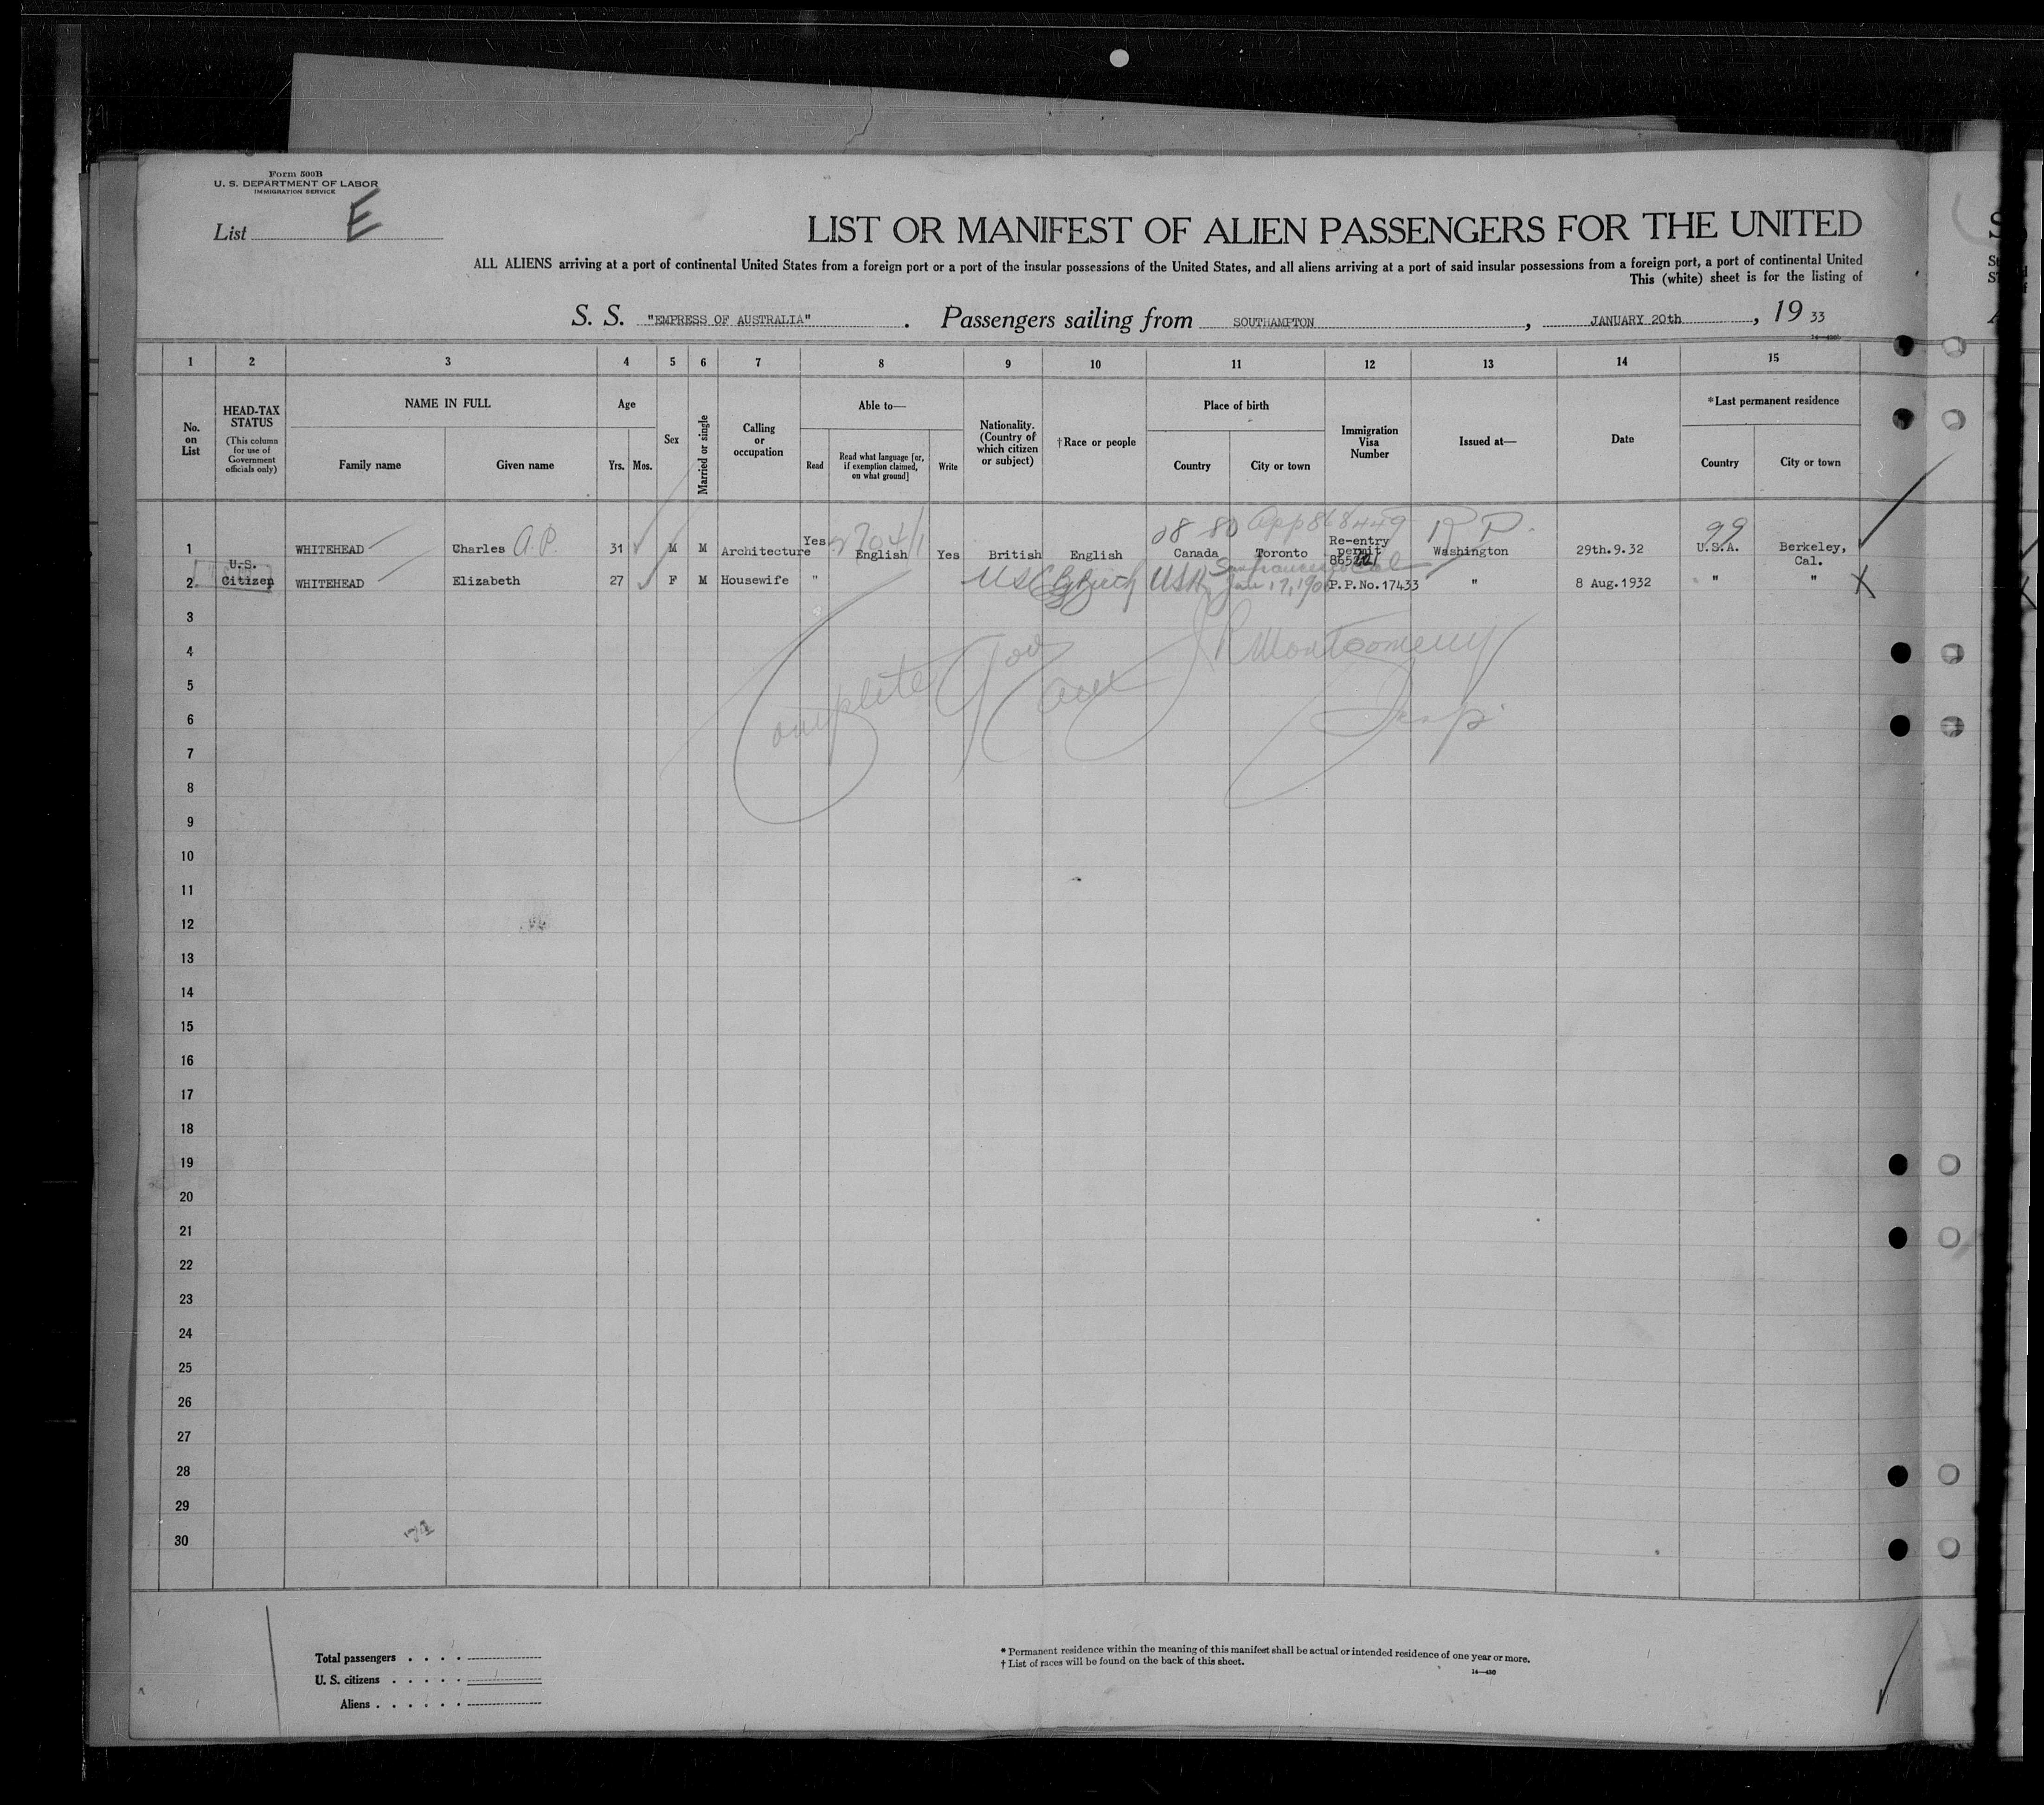 Form 500B
U. S. DEPARTMENT OF LABOR
IMMIGRATION SERVICE
List E
LIST OR MANIFEST OF ALIEN PASSENGERS FOR THE UNITED
ALL ALIENS arriving at a port of continental United States from a foreign port or a port of the insular possessions of the United States, and all aliens arriving at a port of said insular possessions from a foreign port, a port of continental United
This (white) sheet is for the listing of
S. S. "EMPRESS OF AUSTRALIA". Passengers sailing from SOUTHAMPTON, JANUARY 20th, 19 33
1 2 3 4 5 6 7 8 9 10 11 12 13 14 15
No. on List
HEAD-TAX STATUS
(This column for use of Government officials only)
NAME IN FULL
Family name
Given name
Age
Yrs. Mos.
Sex
Married or single
Calling or occupation
Able to—
Read
Read what language [or, if exemption claimed, on what ground]
Write
Nationality. (Country of which citizen or subject)
†Race or people
Place of birth
Country
City or town
Immigration Visa Number
Issued at—
Date
*Last permanent residence
Country
City or town
08 80 App 868449 R P. 99
1 WHITEHEAD Charles A.P. 31 M M Architecture Yes English Yes British English Canada Toronto Re-entry permit Washington 29th.9.32 U.S.A. Berkeley, Cal.
San Francisco Cal
2 U.S. Citizen WHITEHEAD Elizabeth 27 F M Housewife " USC USA Jan 17, P.P.No.17433 " 8 Aug.1932 " "
3
4
5
6
7
8
9
10
11
12
13
14
15
16
17
18
19
20
21
22
23
24
25
26
27
28
29
30
Complete
Montgomery
Insp.
Total passengers
U. S. citizens
Aliens
* Permanent residence within the meaning of this manifest shall be actual or intended residence of one year or more.
† List of races will be found on the back of this sheet.
14—430